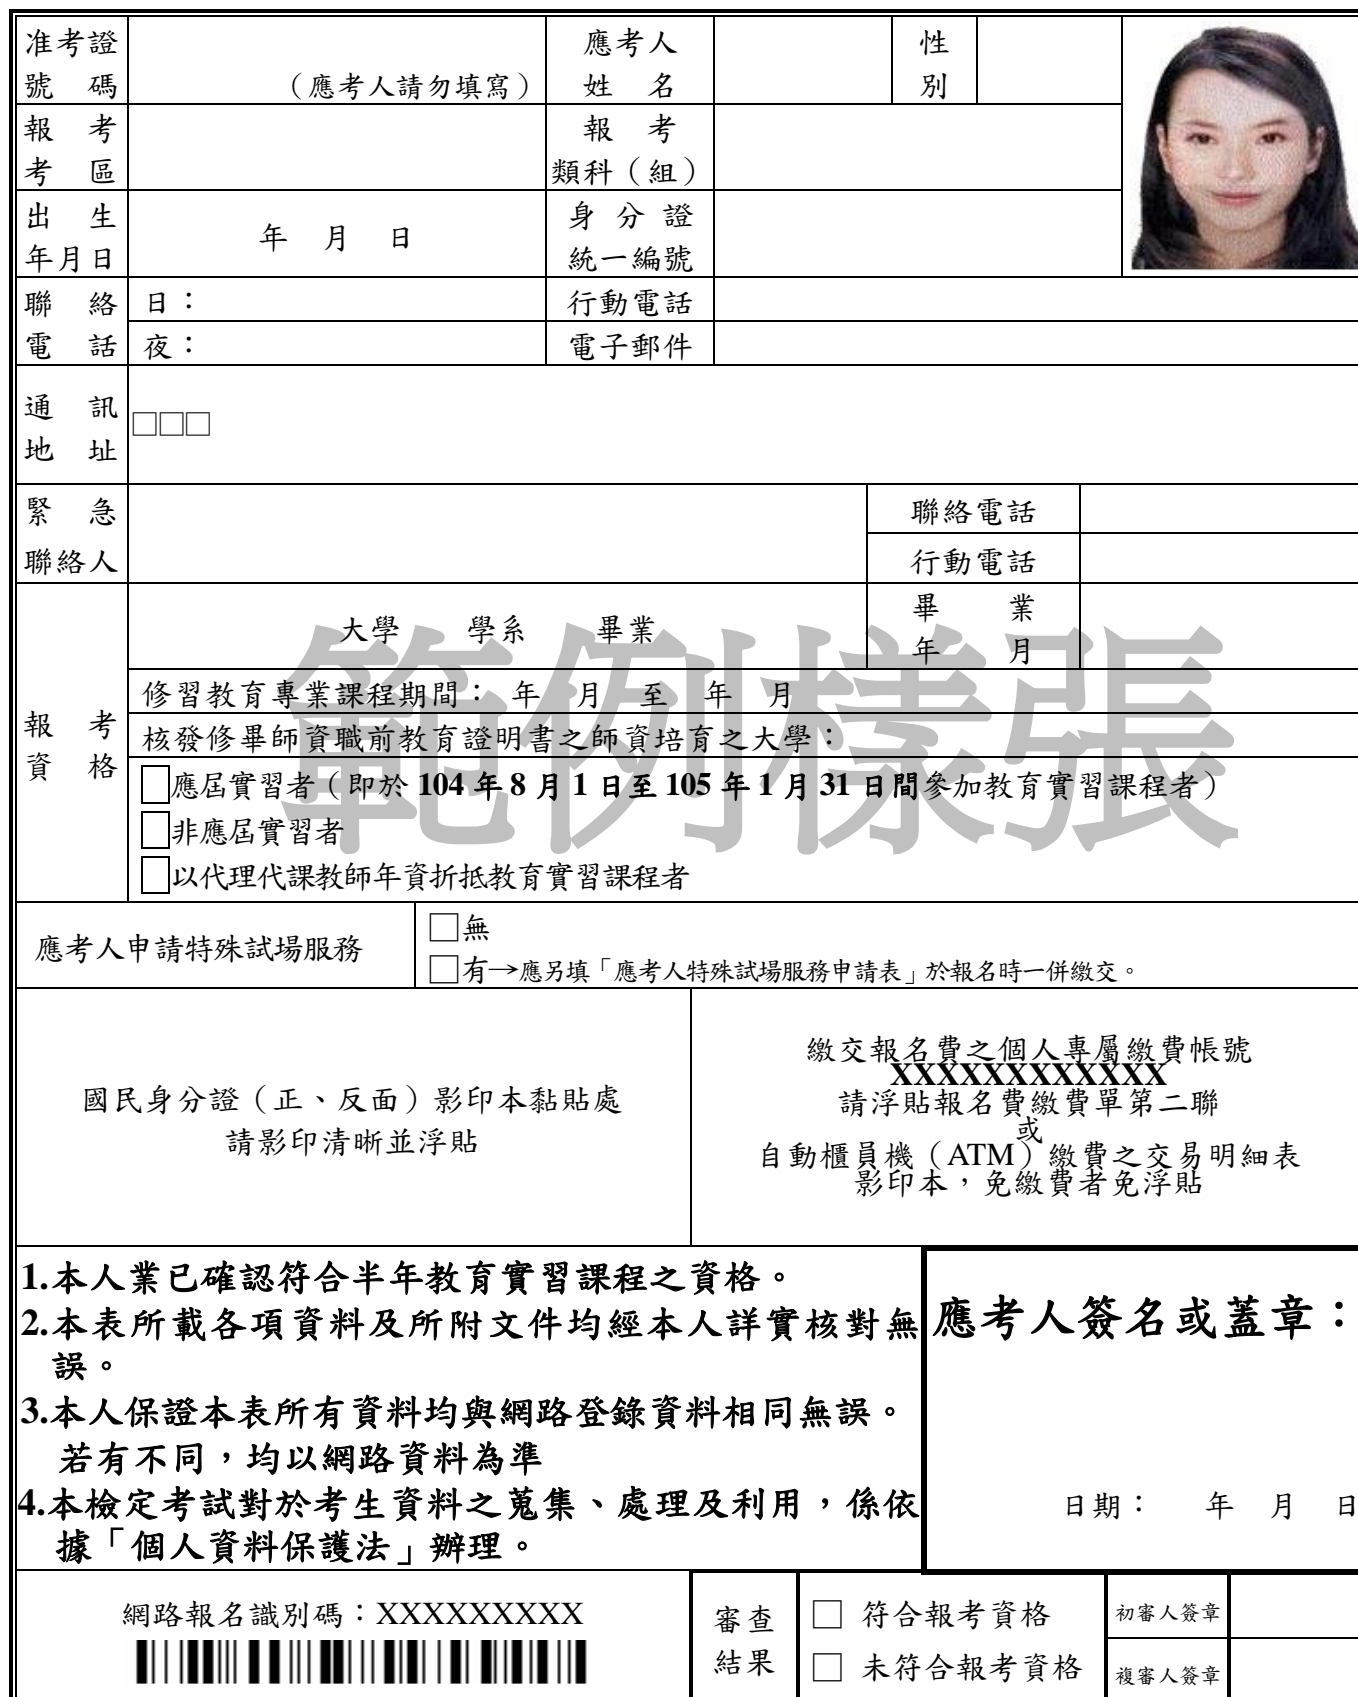 准考證
號　碼
（應考人請勿填寫）
應考人
姓　名
性
別
報　考
考　區
報　考
類科（組）
出　生
年月日
年　月　日
身 分 證
統一編號
聯　絡
電　話
日：
行動電話
夜：
電子郵件
通　訊
地　址
□□□
緊　急
聯絡人
聯絡電話
行動電話
報　考
資　格
大學　　學系　　畢業
畢　業
年　月
修習教育專業課程期間：　年　月　至　年　月
核發修畢師資職前教育證明書之師資培育之大學：
□應屆實習者（即於 104 年 8 月 1 日至 105 年 1 月 31 日間參加教育實習課程者）
□非應屆實習者
□以代理代課教師年資折抵教育實習課程者
範例樣張
應考人申請特殊試場服務
□無
□有→應另填「應考人特殊試場服務申請表」於報名時一併繳交。
國民身分證（正、反面）影印本黏貼處
請影印清晰並浮貼
繳交報名費之個人專屬繳費帳號
XXXXXXXXXXXX
請浮貼報名費繳費單第二聯
或
自動櫃員機（ATM）繳費之交易明細表
影印本，免繳費者免浮貼
1.本人業已確認符合半年教育實習課程之資格。
2.本表所載各項資料及所附文件均經本人詳實核對無
誤。
3.本人保證本表所有資料均與網路登錄資料相同無誤。
若有不同，均以網路資料為準
4.本檢定考試對於考生資料之蒐集、處理及利用，係依
據「個人資料保護法」辦理。
應考人簽名或蓋章：
日期：　　年　月　日
網路報名識別碼：XXXXXXXXX
審查
結果
□ 符合報考資格
□ 未符合報考資格
初審人簽章
複審人簽章